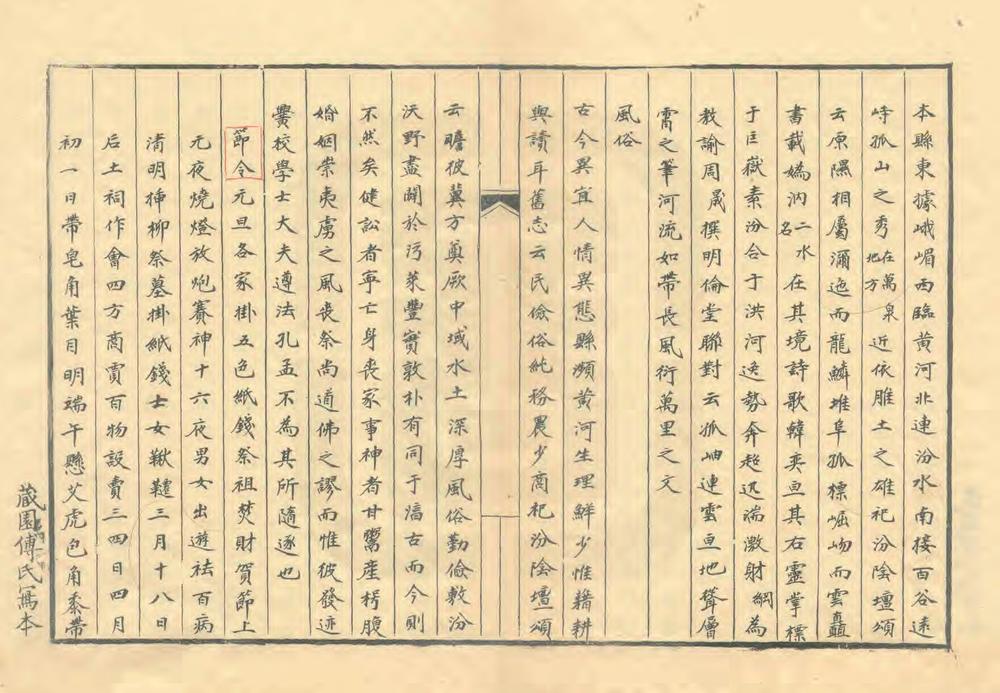 本縣東據峨嵋西臨黄河北連汾水南接百谷遠
峙孤山之秀在萬泉地方近依脽土之雄祀汾陰壇頌
云原隰相屬瀰迤而龍鱗堆阜孤標崛岉而雲矗
書載嬀汭二水名在其境詩歌韓奕亘其右靈掌標
于巨嶽素汾合于洪河逸勢奔趍迅湍激射綱為
教諭周晟撰明倫堂聯對云孤岫連雲亘地聳層
霄之筆河流如帶長風衍萬里之文
風俗
古今異宜人情異態縣瀕黄河生理鮮少惟藉耕
與讀耳舊志云民儉俗純務農少商祀汾陰壇頌
云瞻彼冀方奠厥中域水土深厚風俗勤儉敷汾
沃野盡闢於污萊豐實敦朴有同于滈古而今則
不然矣健訟者寧亡身丧家事神者甘鬻産枵腹
婚姻崇夷虜之風丧祭尚道佛之謬而惟彼發迹
黌校學士大夫遵法孔孟不為其所隨逐也
節令元旦各家掛五色紙錢祭祖焚財賀節上
元夜燒燈放炮賽神十六夜男女出遊祛百病
清明揷柳祭墓掛紙錢士女鞦韆三月十八日
后土祠作會四方商賈百物設賣三四日四月
初一日帶皂角葉目明端午懸艾虎包角黍帶
藏園傅氏寫本